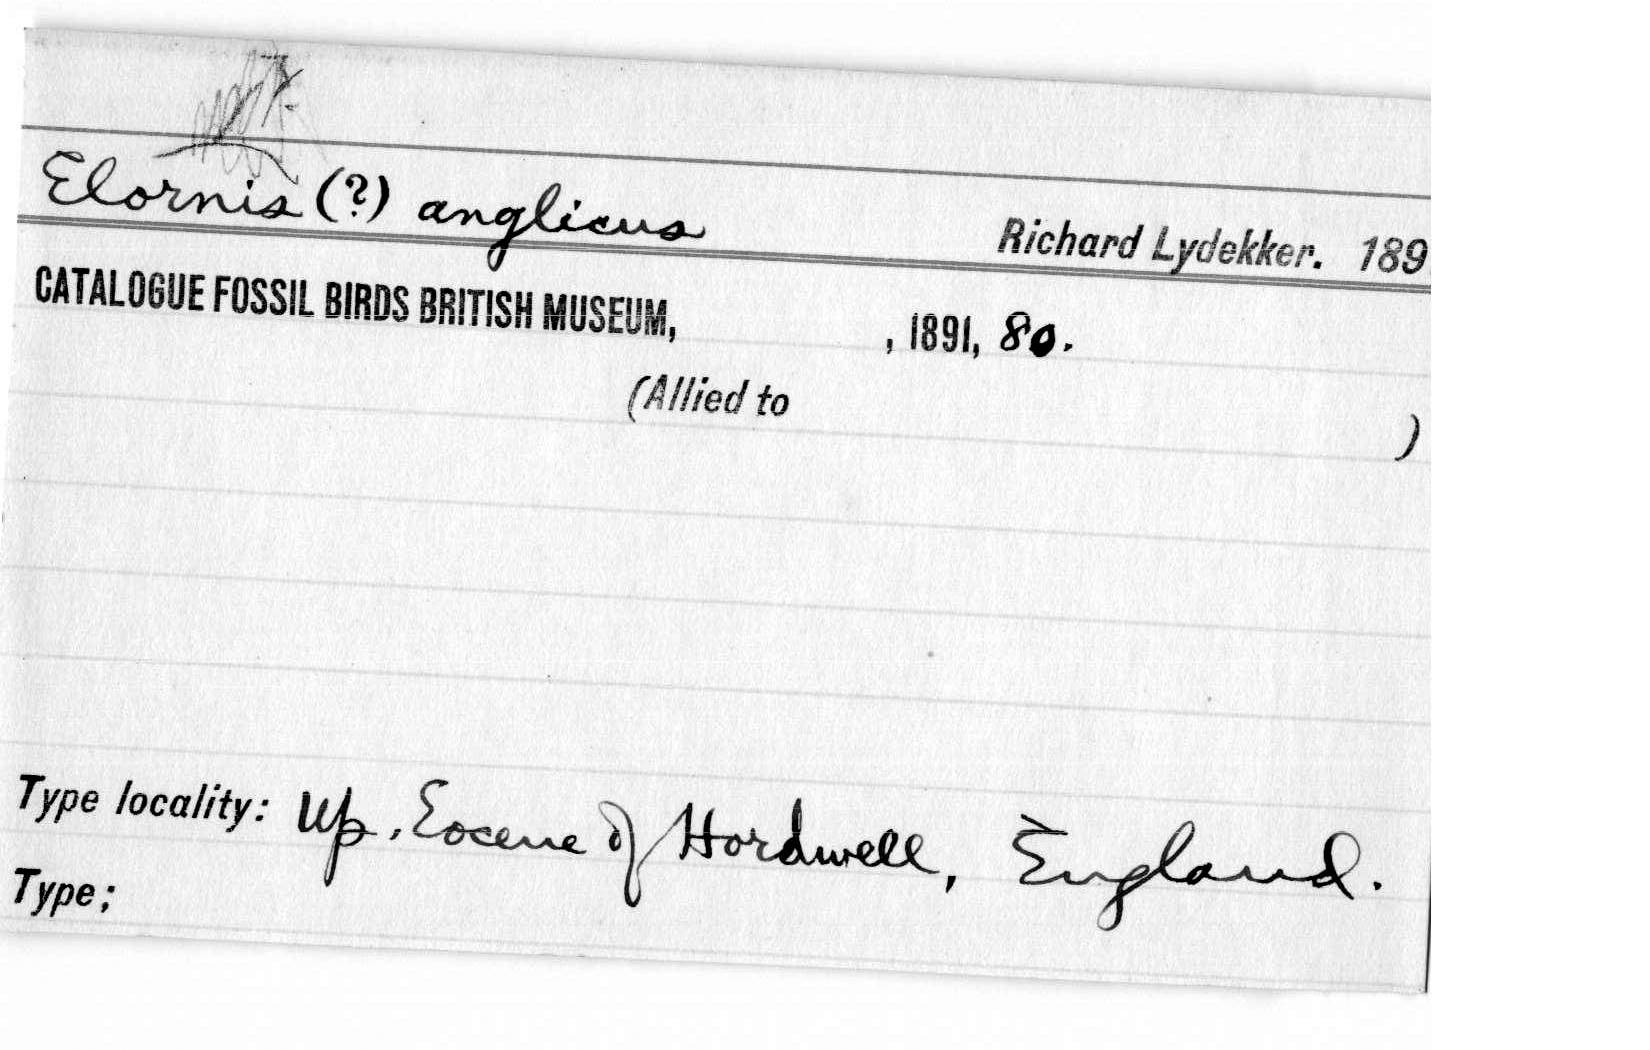 Elornis (?) anglicus Richard Lydekker. 189
CATALOGUE FOSSIL BIRDS BRITISH MUSEUM, , 1891, 80.
(Allied to )
Type locality: Up. Eocene of Hordwell, England.
Type;